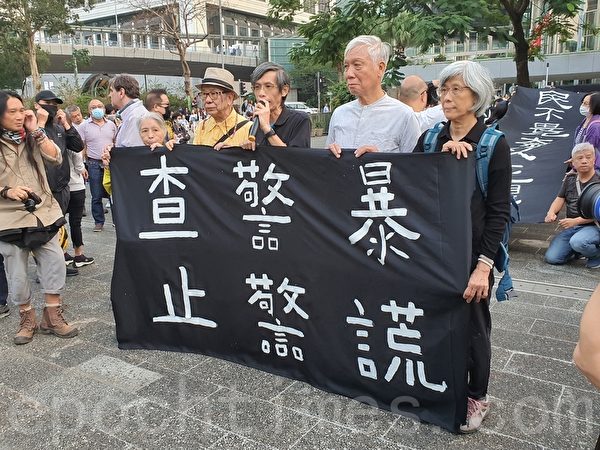 查警暴
止警謊
民不是
epochtimes.com